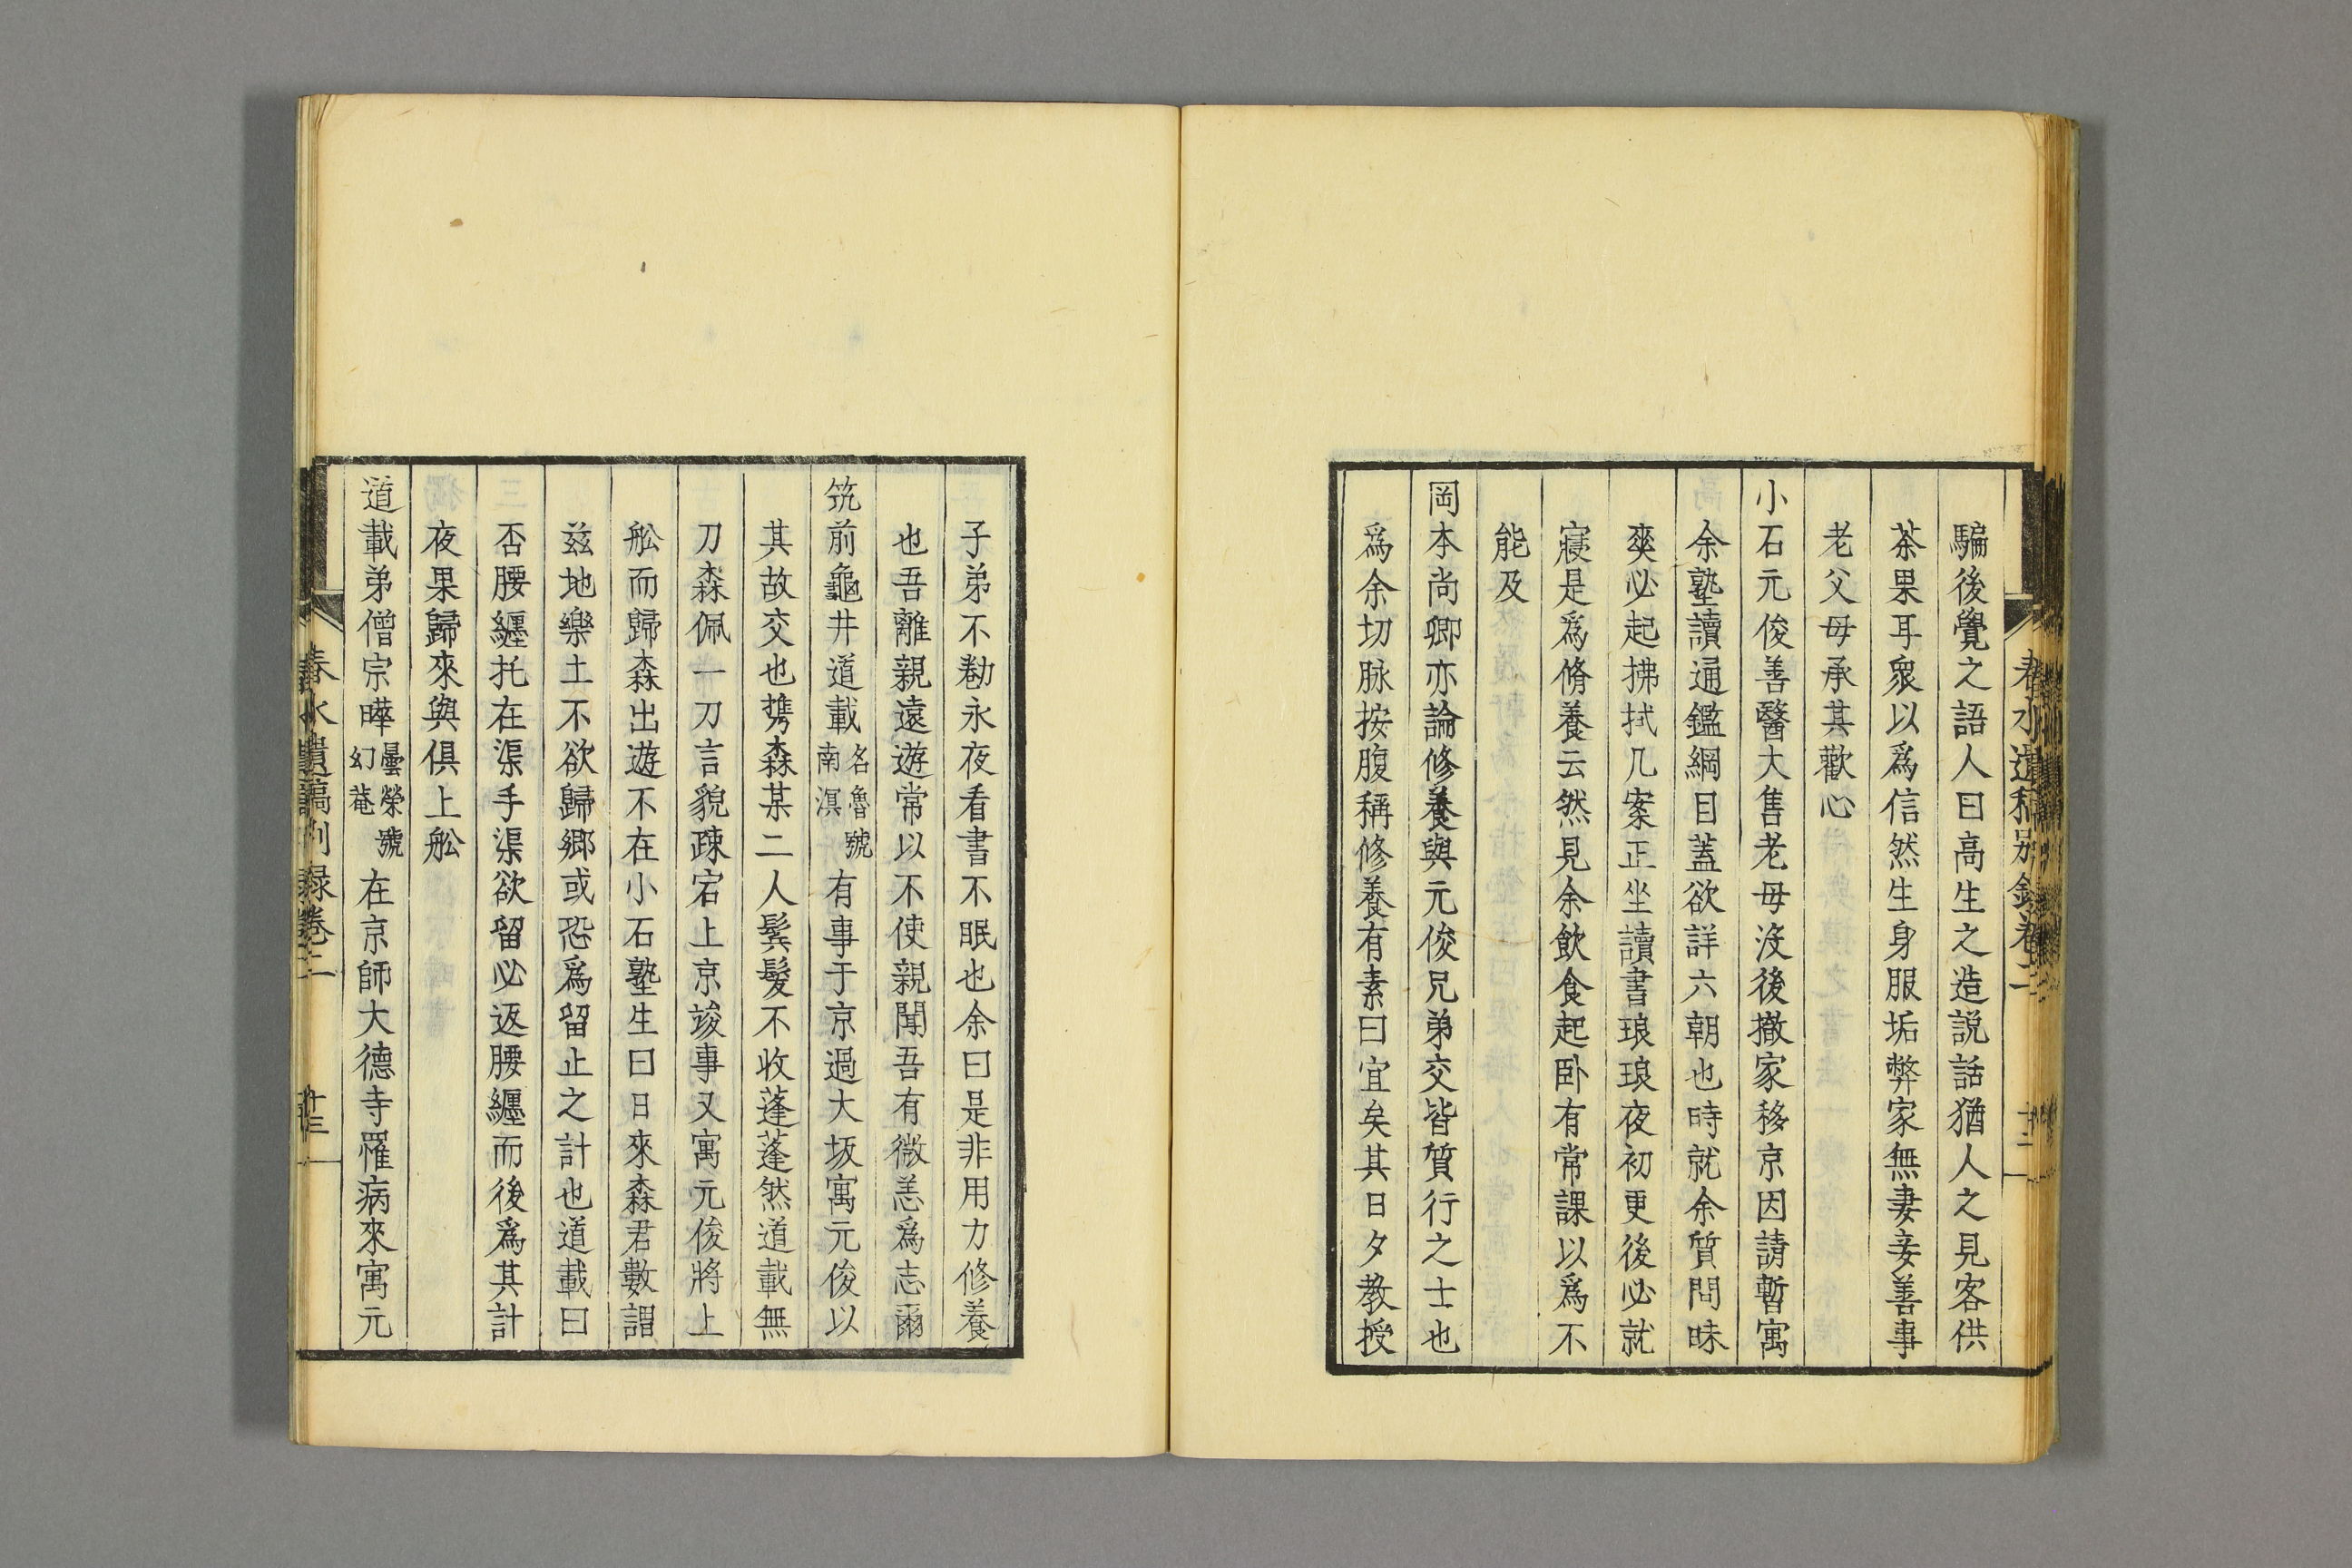 春水遺稿別録卷二
十二
騙後覺之語人曰高生之造説話猶人之見客供
茶果耳衆以爲信然生身服垢弊家無妻妾善事
老父母承其歡心
小石元俊善醫大售老母没後撤家移京因請暫寓
余塾讀通鑑綱目蓋欲詳六朝也時就余質問昧
爽必起拂拭几案正坐讀書琅琅夜初更後必就
寢是爲脩養云然見余飲食起卧有常課以爲不
能及
岡本尚卿亦論修養與元俊兄弟交皆質行之士也
爲余切脉按腹稱修養有素曰宜矣其日夕教授
子弟不勌永夜看書不眠也余曰是非用力修養
也吾離親遠遊常以不使親聞吾有微恙爲志爾
筑前龜井道載名魯號南溟有事于京過大坂寓元俊以
其故交也携森某二人鬂髮不收蓬蓬然道載無
刀森佩一刀言貌疎宕上京竣事又寓元俊將上
舩而歸森出遊不在小石塾生曰日來森君數謂
兹地樂土不欲歸鄉或恐爲留止之計也道載曰
否腰纒托在渠手渠欲留必返腰纒而後爲其計
夜果歸來與俱上舩
道載弟僧宗曄曇榮號幻菴在京師大德寺罹病來寓元
春水遺稿別録卷二
十三